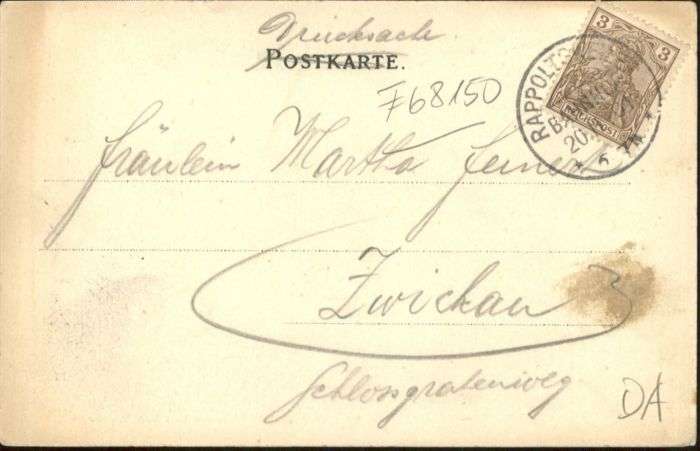 Drucksache.
POSTKARTE.
3 3
RAPPOLTS
20
F68150
Fräulein Martha
Zwickau
Schlossgrabenweg
DA